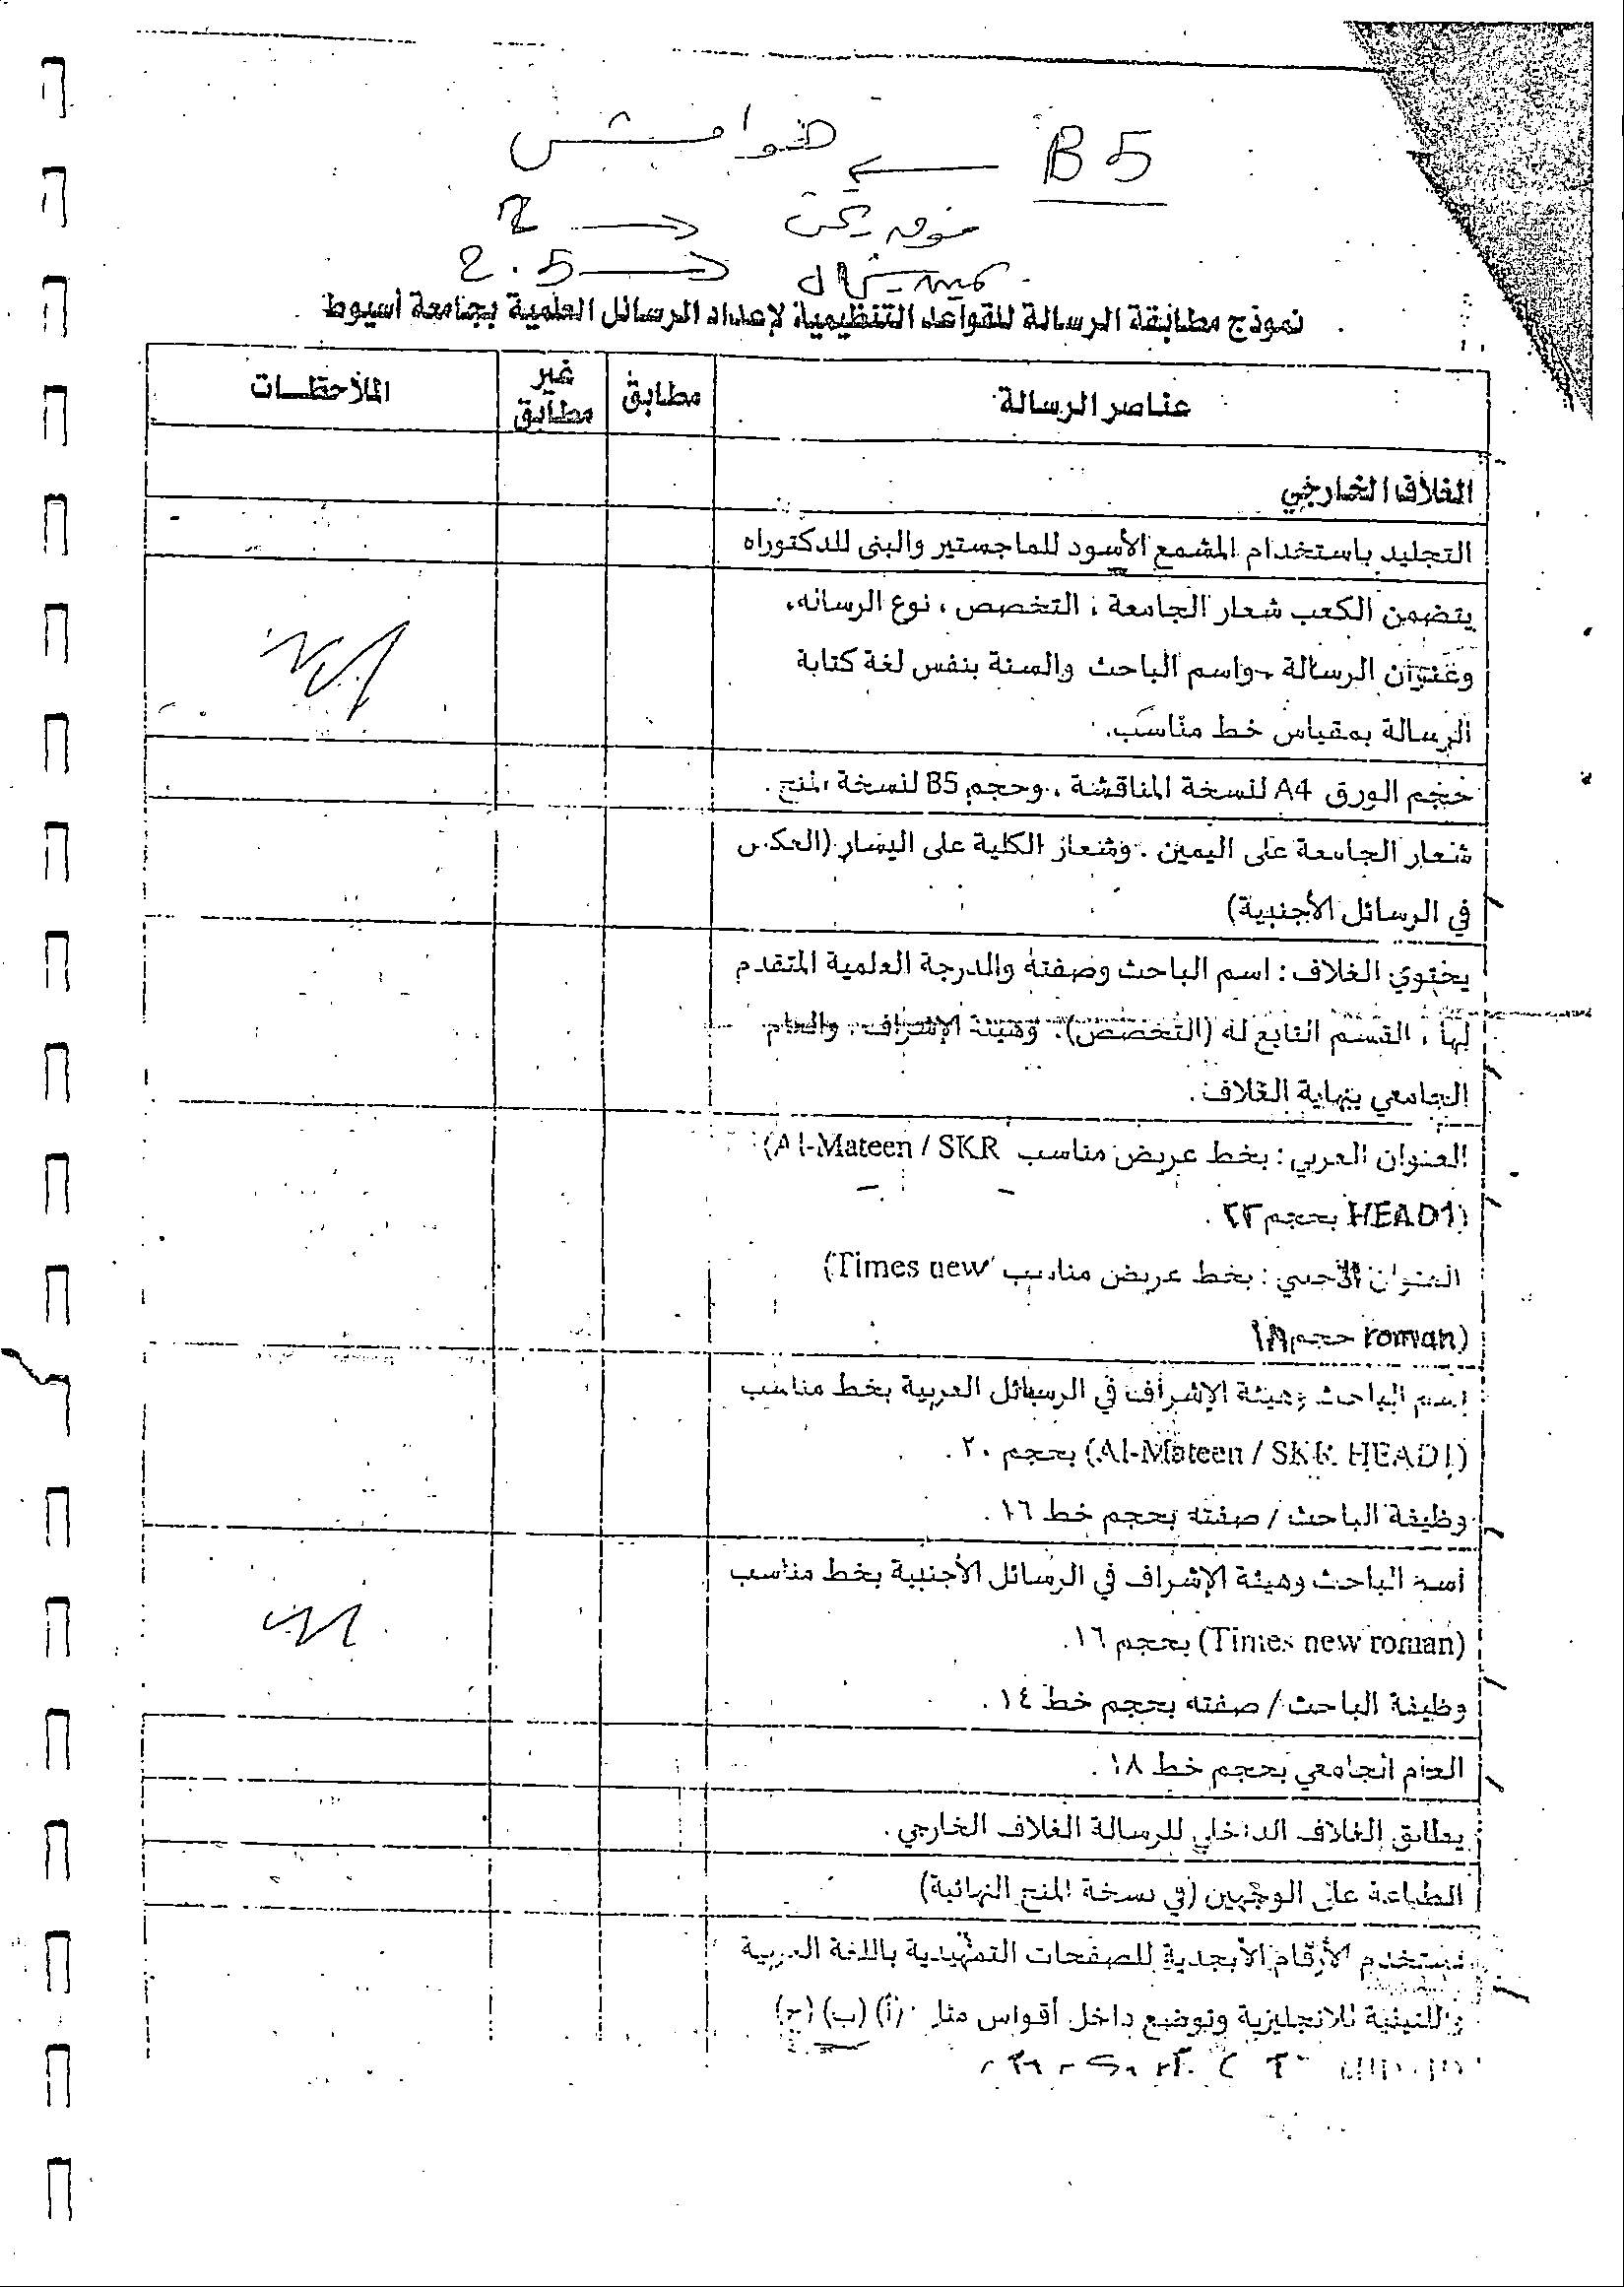 B5 ← هوامش
فوق تحت ← 2
يمين شمال ← 2.5
نموذج مطابقة الرسالة للقواعد التنظيمية لإعداد الرسائل العلمية بجامعة أسيوط
عناصر الرسالة مطابق غير مطابق الملاحظات
الغلاف الخارجي
التجليد باستخدام المشمع الأسود للماجستير والبنى للدكتوراه
يتضمن الكعب شعار الجامعة ، التخصص ، نوع الرسالة،
وعنوان الرسالة واسم الباحث والسنة بنفس لغة كتابة
الرسالة بمقياس خط مناسب.
حجم الورق A4 لنسخة المناقشة ، وحجم B5 لنسخة المنح .
شعار الجامعة على اليمين . وشعار الكلية على اليسار (العكس
في الرسائل الأجنبية)
يحتوي الغلاف : اسم الباحث وصفته والدرجة العلمية المتقدم
لها ، القسم التابع له (التخصص). وهيئة الإشراف ، والعام
الجامعي بنهاية الغلاف .
العنوان العربي : بخط عريض مناسب (Al-Mateen / SKR
HEAD1) بحجم ٢٢ .
العنوان الأجنبي : بخط عريض مناسب (Times new
roman) حجم ١٨
اسم الباحث وهيئة الإشراف في الرسائل العربية بخط مناسب
(Al-Mateen / SKR HEAD1) بحجم ٢٠ .
وظيفة الباحث / صفته بحجم خط ١٦ .
اسم الباحث وهيئة الإشراف في الرسائل الأجنبية بخط مناسب
(Times new roman) بحجم ١٦.
وظيفة الباحث / صفته بحجم خط ١٤ .
العام الجامعي بحجم خط ١٨ .
يطابق الغلاف الداخلي للرسالة الغلاف الخارجي .
الطباعة على الوجهين (في نسخة المنح النهائية)
تستخدم الأرقام الأبجدية للصفحات التمهيدية باللغة العربية
واللاتينية للانجليزية وتوضع داخل أقواس مثل (أ) (ب) (ج)